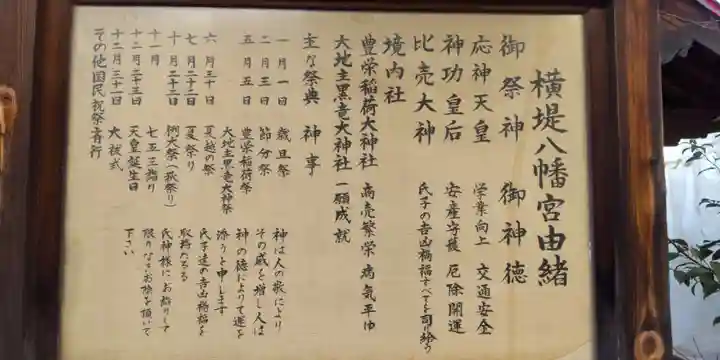 横堤八幡宮由緒
御祭神 御神徳
応神天皇 学業向上 交通安全
神功皇后 安産守護 厄除開運
比売大神 氏子の吉凶禍福すべてを司り給う
境内社
豊栄稲荷大神社 商売繁栄 病気平ゆ
大地主黒竜大神社 一願成就
主な祭典 神事
一月一日 歳旦祭
二月三日 節分祭
五月五日 豊栄稲荷祭
大地主黒竜大神祭
六月三十日 夏越の祭
七月二十二日 夏祭り
十月二十二日 例大祭(萩祭り)
十一月 七五三詣り
十二月二十三日 天皇誕生日
十二月三十一日 大祓式
その他国民祝祭斉行
神は人の敬により
その威を増し人は
神の徳によりて運を
添うと申します
氏子達の吉凶禍福を
取扱たもる
氏神様にお詣りして
限りないお陰を頂いて
下さい